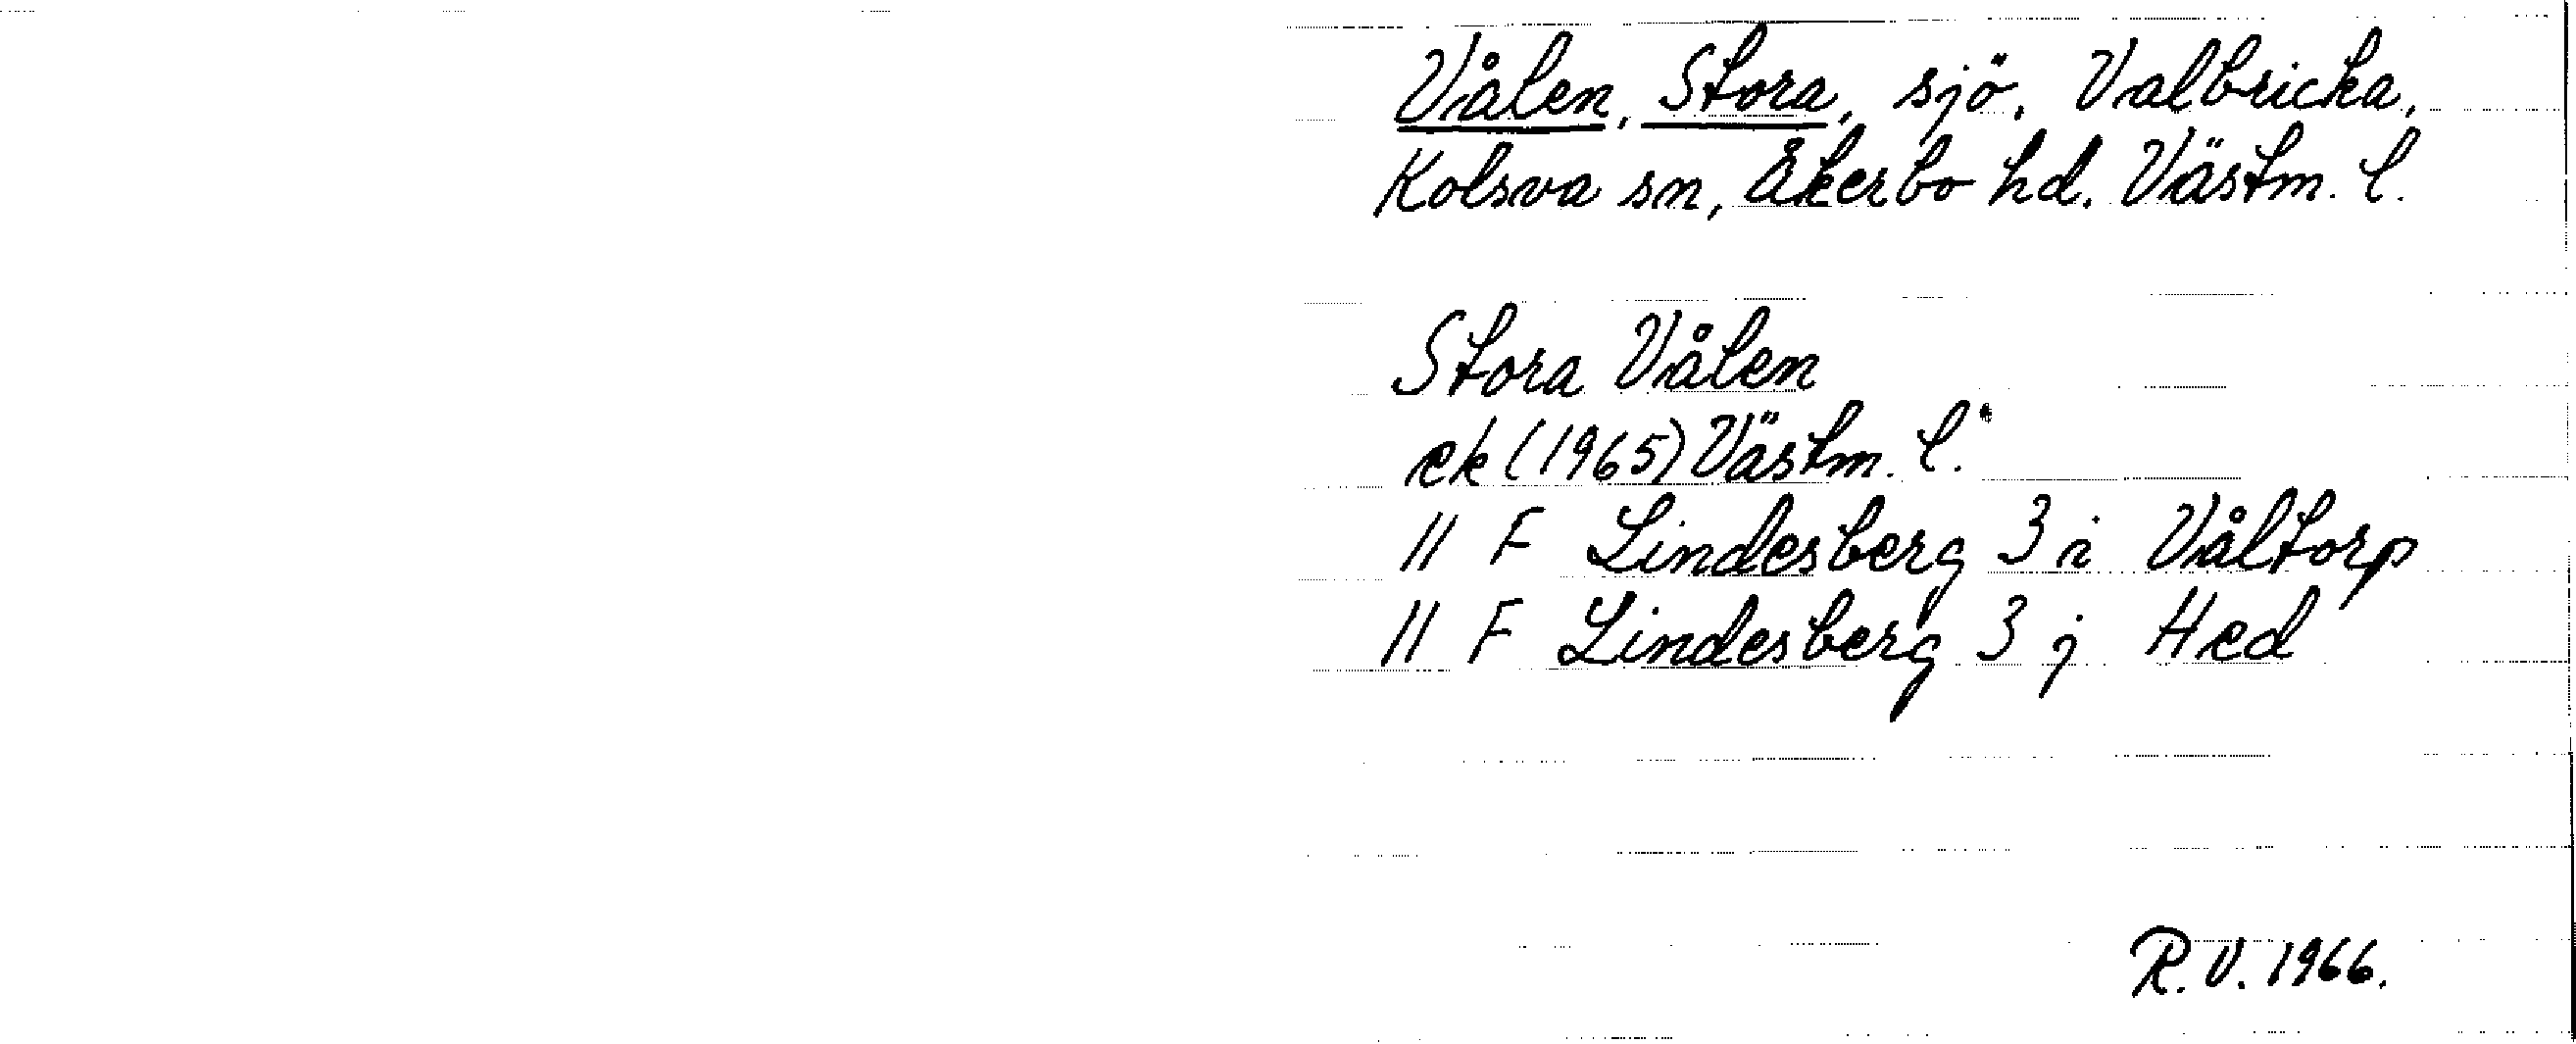 Vålen, Stora, sjö, Valbricka,
Kolsva sn, Åkerbo hd. Västm. l.
Stora Vålen
ek (1965) Västm. l.
11 F Lindesberg 3 i Våltorp
11 F Lindesberg 3 j Hed
R.V. 1966.